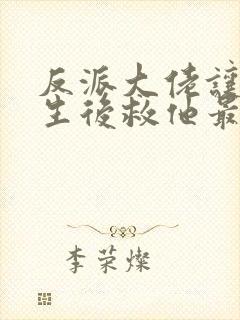 反派大佬讓
生後救他最
李荣燦